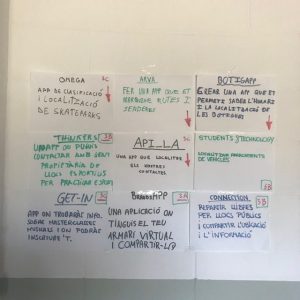 OMEGA 3C
APP DE CLASSIFICACIÓ
I LOCALITZACIÓ
DE SKATEPARKS
ARVA 3C
PER UNA APP QUE ET
MARQUIN RUTES I
SENDERS
BOTIGAPP
CREAR UNA APP QUE ET
PERMETI SABER L'HORARI
I LA LOCALITZACIÓ DE
LES BOTIGUES
THINKERS 5B
UNA APP ON PUGUIS
CONTACTAR AMB GENT
PROPIETÀRIA DE
LLOCS ESPORTIUS
PER PRACTICAR ESPORT
API_LA 3C
UNA APP QUE LOCALITZI
ELS NOSTRES
CONTACTES
STUDENTS & TECHNOLOGY
LOCALITZAR APARCAMENTS
DE VEHICLES
5B
GET-IN 3A
APP ON TROBARÀS INFO.
SOBRE MASTERCLASSES
MUSICALS I ON PODRÀS
INSCRIURE'T.
5A
UNA APLICACIÓ ON
TINGUIS EL TEU
ARMARI VIRTUAL
I COMPARTIR-LO
CONNECTION 5B
REPARTIR LLIBRES
PER LLOCS PÚBLICS
I COMPARTIR L'UBICACIÓ
I L'INFORMACIÓ